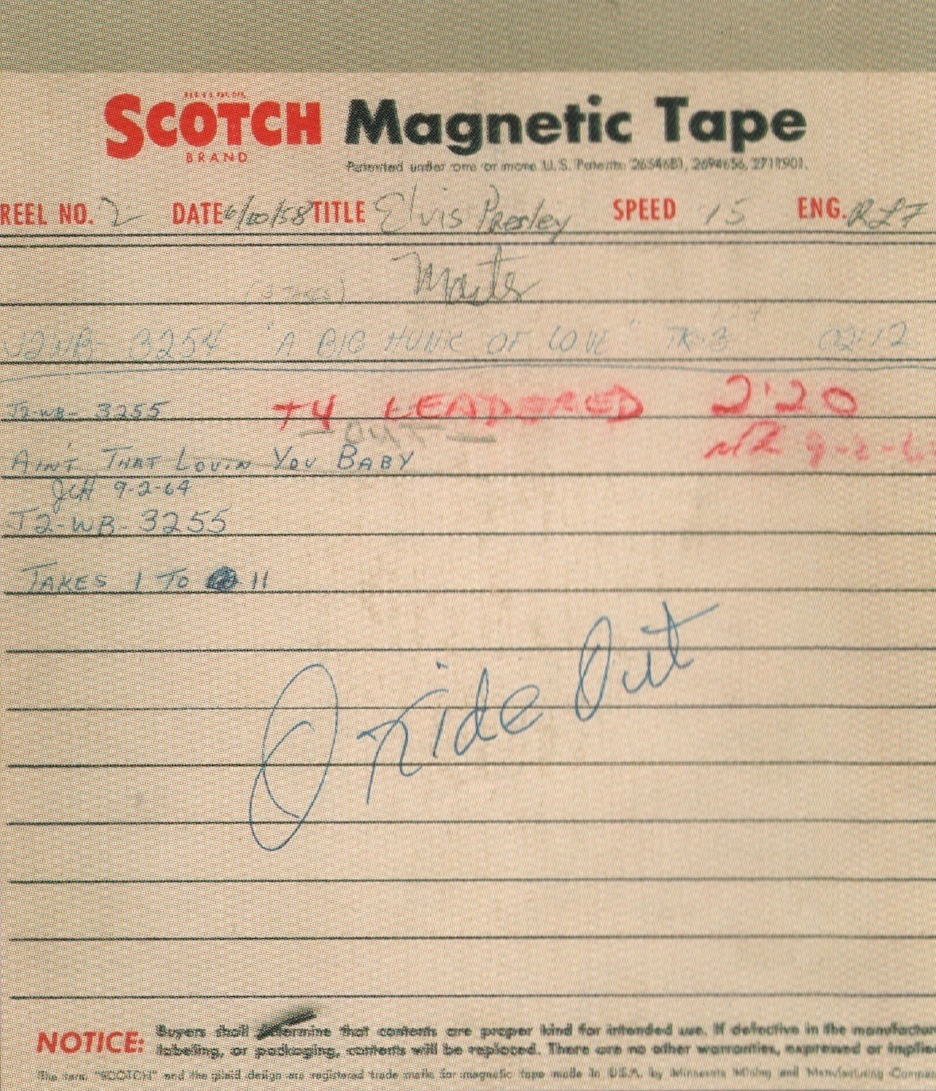 SCOTCH Magnetic Tape
BRAND
Patented under one or more U.S. Patents: 2654681, 2694656, 2711901.
REEL NO. 2 DATE 6/10/58 TITLE Elvis Presley SPEED 15 ENG. RLF
Master
J2WB- 3254 "A BIG HUNK OF LOVE" TK-3 02:12
J2-WB- 3255 T4 LEADERED 2:20
OUT
AIN'T THAT LOVIN YOU BABY
JCH 9-2-64
J2-WB-3255
TAKES 1 TO 11
Oxide Out
NOTICE: Buyers shall determine that contents are proper kind for intended use. If defective in the manufactur
labeling, or packaging, contents will be replaced. There are no other warranties, expressed or implie
The term "SCOTCH" and the plaid design are registered trade marks for magnetic tape made in U.S.A. by Minnesota Mining and Manufacturing Compan